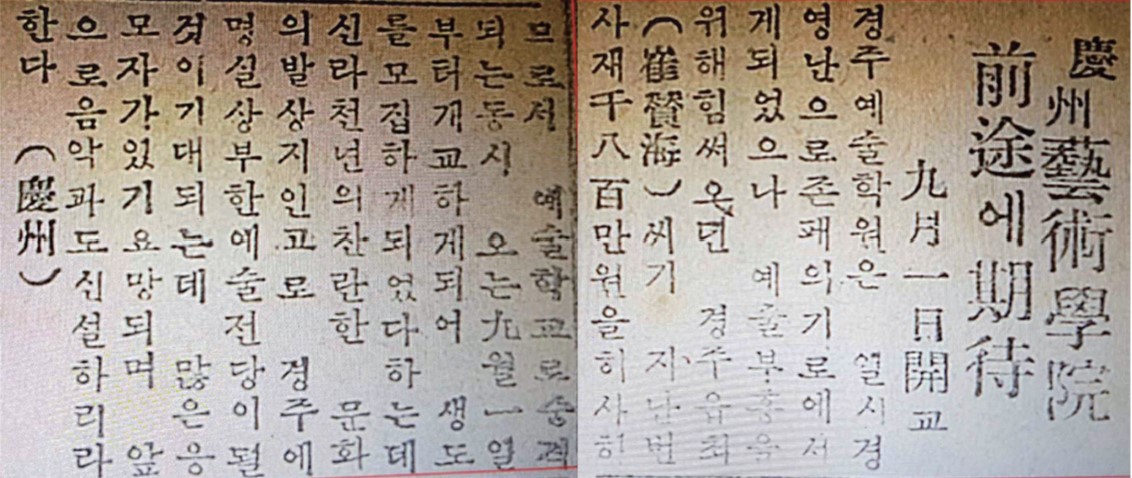 慶州藝術學院
前途에期待
九月一日開교
경주예술학원은 열시경
영난으로존패의기로에서
게되었으나 예술부흥을
위해힘써온던 경주유최
(崔贊海)씨기 지난번
사재千八百만원을히사히
므로서 예술학교로승격
되는동시 오는九월一일
부터개교하게되어 생도
를모집하게되었다하는데
신라천년의찬란한 문화
의발상지인고로 경주에
명설상부한예술전당이될
것이기대되는데 많은응
모자가있기요망되며 앞
으로음악과도신설하리라
한다 (慶州)